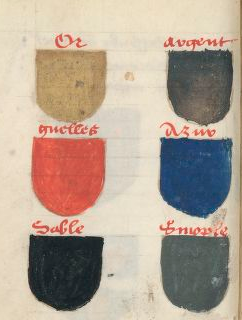 Or argent
guelles Azur
Sable Sinople